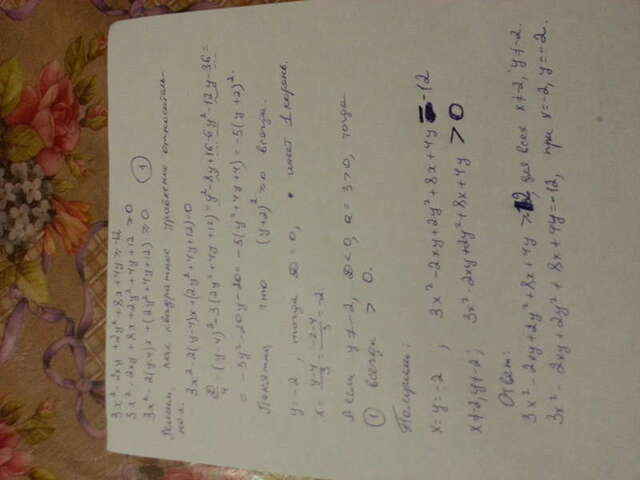 3x² - 2xy + 2y² + 8x + 4y ≥ -12
3x² - 2xy + 8x + 2y² + 4y + 12 ≥ 0
3x² - 2(y-4)x + (2y² + 4y + 12) ≥ 0 ①
Решаем как квадратное уравнение относитель-
но x.
3x² - 2(y-4)x + (2y² + 4y + 12) = 0
D/4 = (y-4)² - 3(2y² + 4y + 12) = y² - 8y + 16 - 6y² - 12y - 36 =
= -5y² - 20y - 20 = -5(y² + 4y + 4) = -5(y+2)².
Понятно что (y+2)² ≥ 0 всегда.
y = -2, тогда D = 0, имеет 1 корень.
x = (y-4)/3 = (-2-4)/3 = -2.
А если y ≠ -2, D < 0, a = 3 > 0, тогда
① всегда > 0.
Получим:
x = y = -2, 3x² - 2xy + 2y² + 8x + 4y = -12
x ≠ -2, y ≠ -2; 3x² - 2xy + 2y² + 8x + 4y > 0
Ответ:
3x² - 2xy + 2y² + 8x + 4y > 12, для всех x ≠ -2, y ≠ -2.
3x² - 2xy + 2y² + 8x + 4y = -12, при x = -2, y = -2.